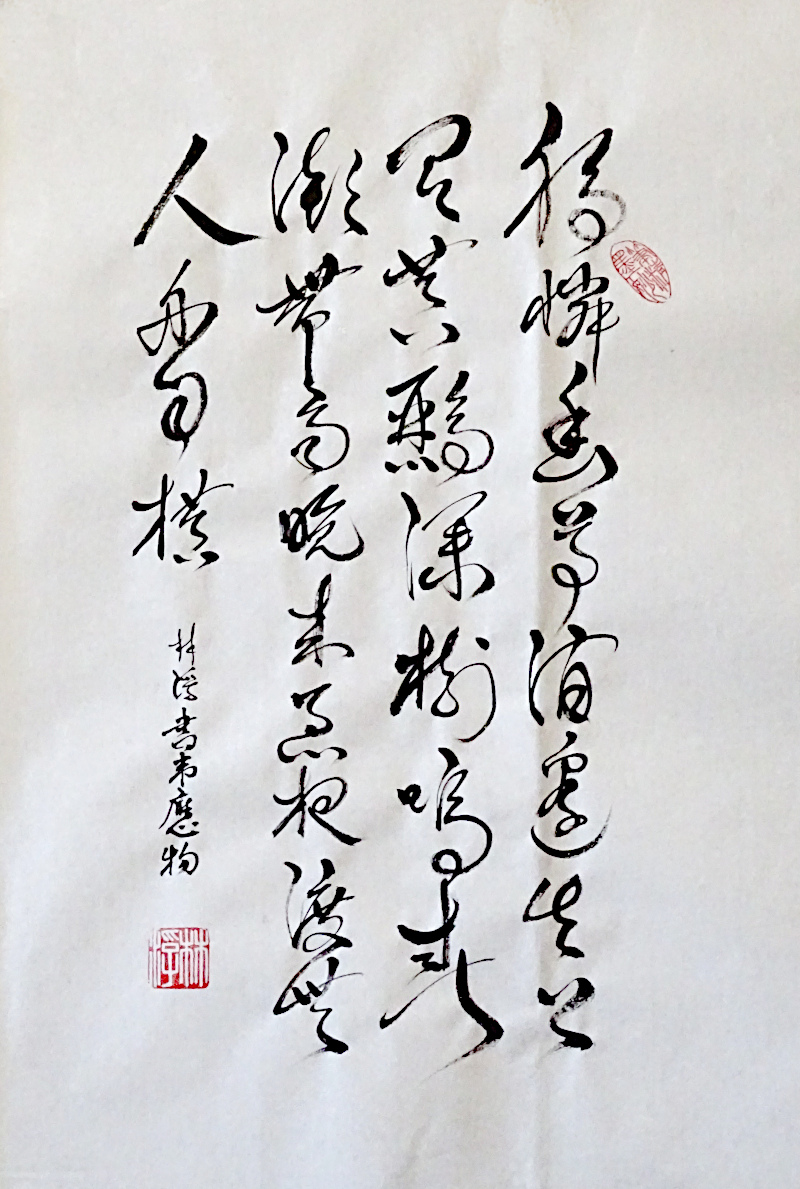 獨憐幽草澗邊生上
有黃鸝深樹鳴春
潮帶雨晚來急野渡無
人舟自橫
林浮書韋應物
林浮